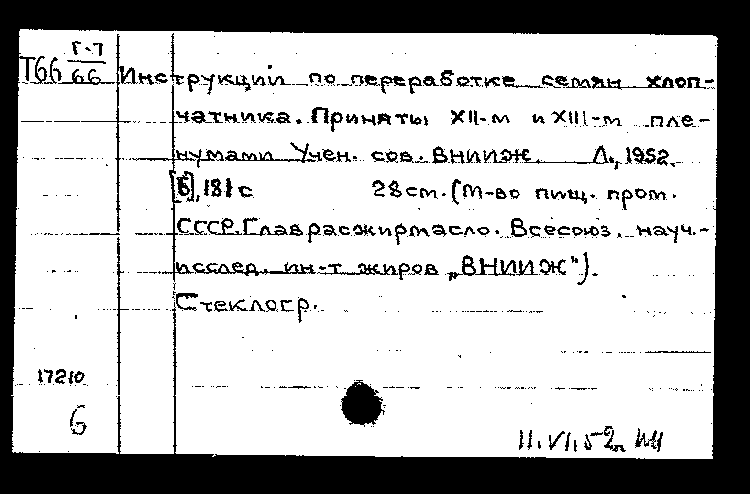 Т66 Г-7
66
Инструкции по переработке семян хлоп-
чатника. Приняты XII-м и XIII-м пле-
нумами Учен. сов. ВНИИЖ. Л., 1952.
[6], 181 с 28 см. (М-во пищ. пром.
СССР. Главрасжирмасло. Всесоюз. науч.-
исслед. ин-т жиров „ВНИИЖ").
Стеклогр.
17210
6
11.VI.52г.